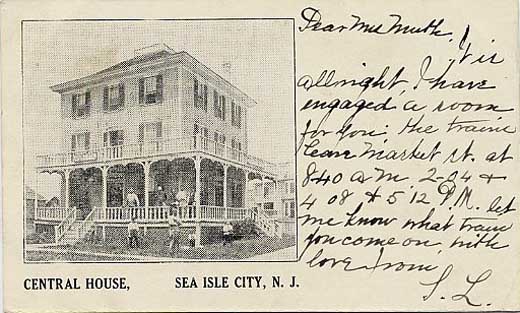 Dear Mrs Muth.
It is
allright, I have
engaged a room
for you. the trains
leave Market st. at
8 40 a.m. 2-24 &
4 08 & 5 12 P.M. let
me know what train
you come on, with
love from
S. L.
CENTRAL HOUSE, SEA ISLE CITY, N. J.